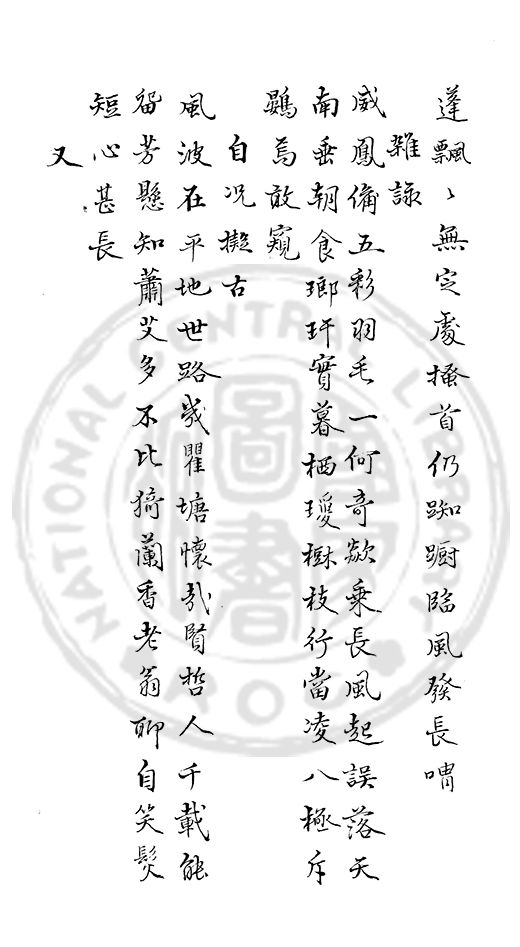 蓬飄〻無定處搔首仍踟躕臨風發長喟
雜詠
威鳳備五彩羽毛一何奇欻乘長風起誤落天
南垂朝食瑯玕實暮栖瓊樹枝行當凌八極斥
鷃焉敢窺
自况擬古
風波在平地世路幾瞿塘懷哉賢哲人千載能
留芳懸知蕭艾多不比猗蘭香老翁聊自笑髮
短心甚長
又
NATIONAL CENTRAL LIBRARY